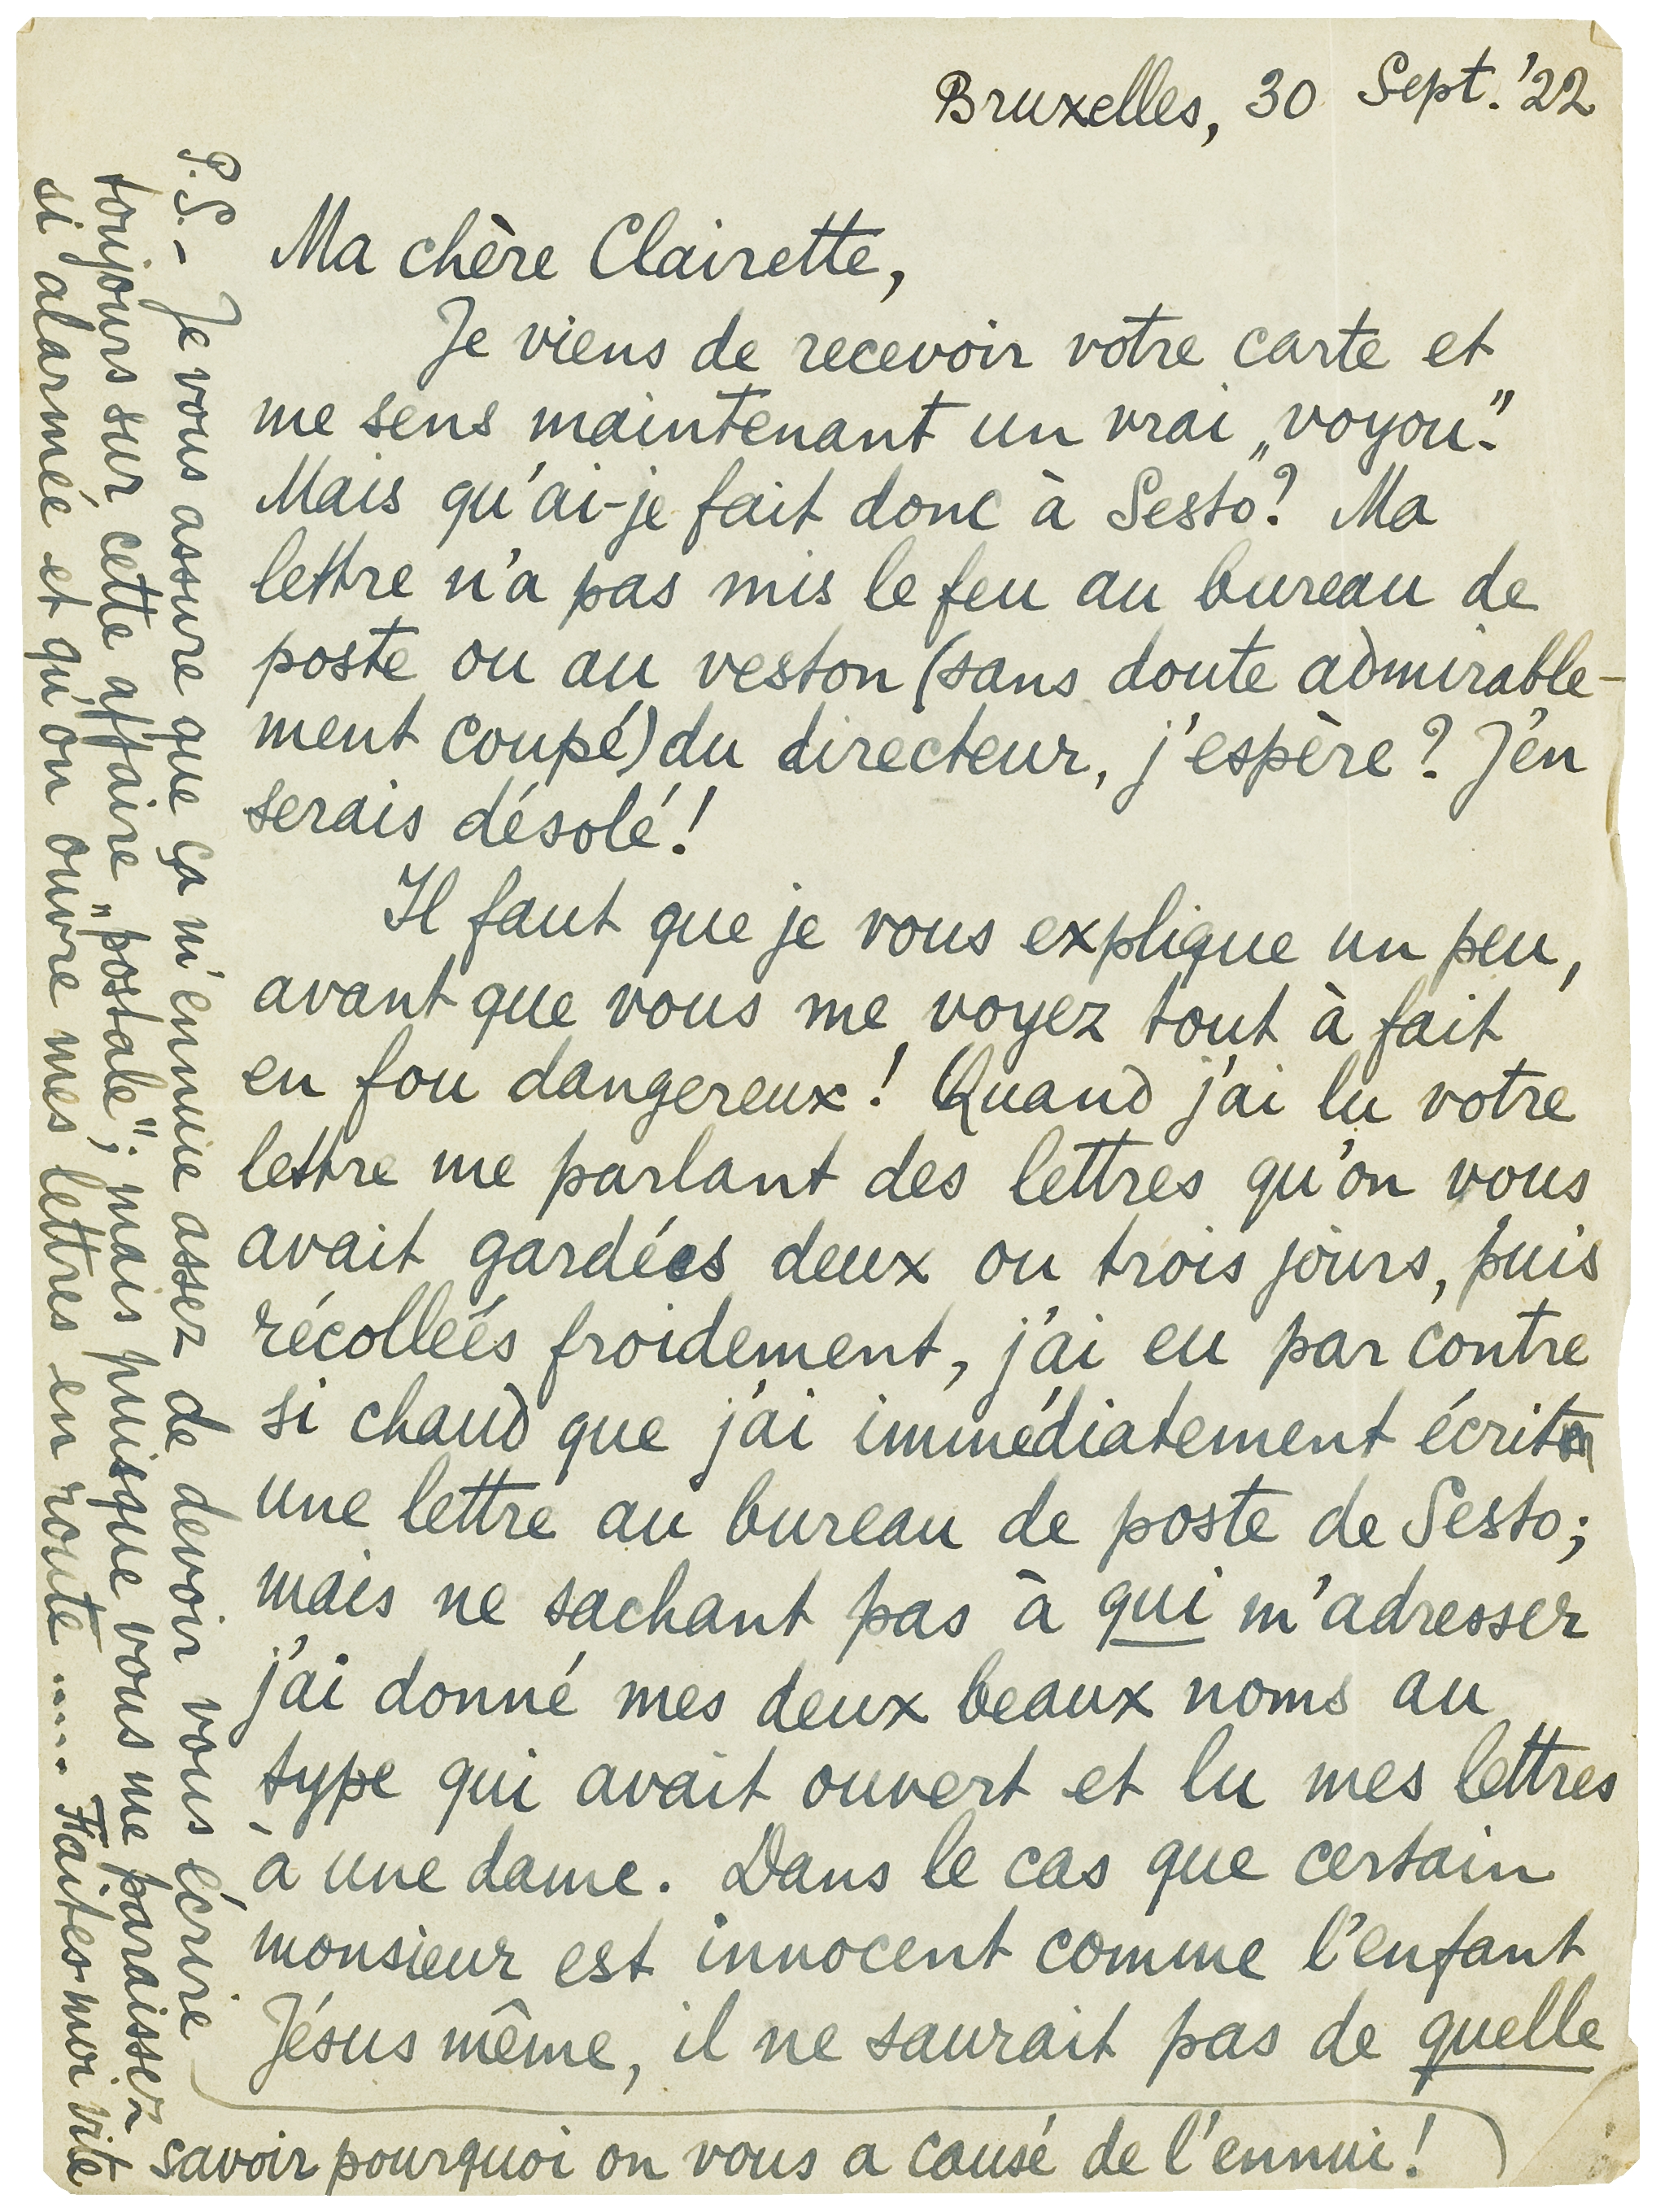 Bruxelles, 30 Sept. '22
Ma chère Clairette,
Je viens de recevoir votre carte et
me sens maintenant un vrai „voyou”.
Mais qu'ai-je fait donc à Sesto? Ma
lettre n'a pas mis le feu au bureau de
poste ou au veston (sans doute admirable-
ment coupé) du directeur, j'espère? J'en
serais désolé!
Il faut que je vous explique un peu,
avant que vous me voyez tout à fait
en fou dangereux! Quand j'ai lu votre
lettre me parlant des lettres qu'on vous
avait gardées deux ou trois jours, puis
récollées froidement, j'ai eu par contre
si chaud que j'ai immédiatement écrit
une lettre au bureau de poste de Sesto;
mais ne sachant pas à qui m'adresser
j'ai donné mes deux beaux noms au
type qui avait ouvert et lu mes lettres
à une dame. Dans le cas que certain
monsieur est innocent comme l'enfant
Jésus même, il ne saurait pas de quelle
P.S. – Je vous assure que ça m'ennuie assez de devoir vous écrire
toujours sur cette affaire „postale”; mais puisque vous me paraissez
si alarmée et qu'on ouvre mes lettres en route..... Faites-moi vite
savoir pourquoi on vous a causé de l'ennui!